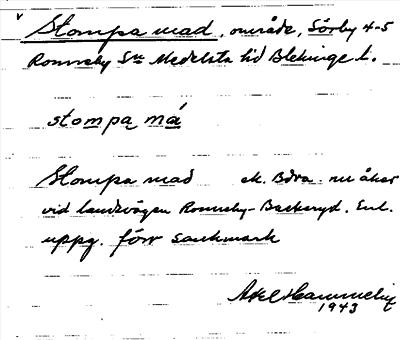 Stompa mad, område, Sörby 4-5
Ronneby Sn Medelsta hd Blekinge l.
stompa må
Stompa mad ek. Bdra. nu åker
vid landsvägen Ronneby-Backaryd. Enl.
uppg. förr sankmark
Axel Hammelin
1943